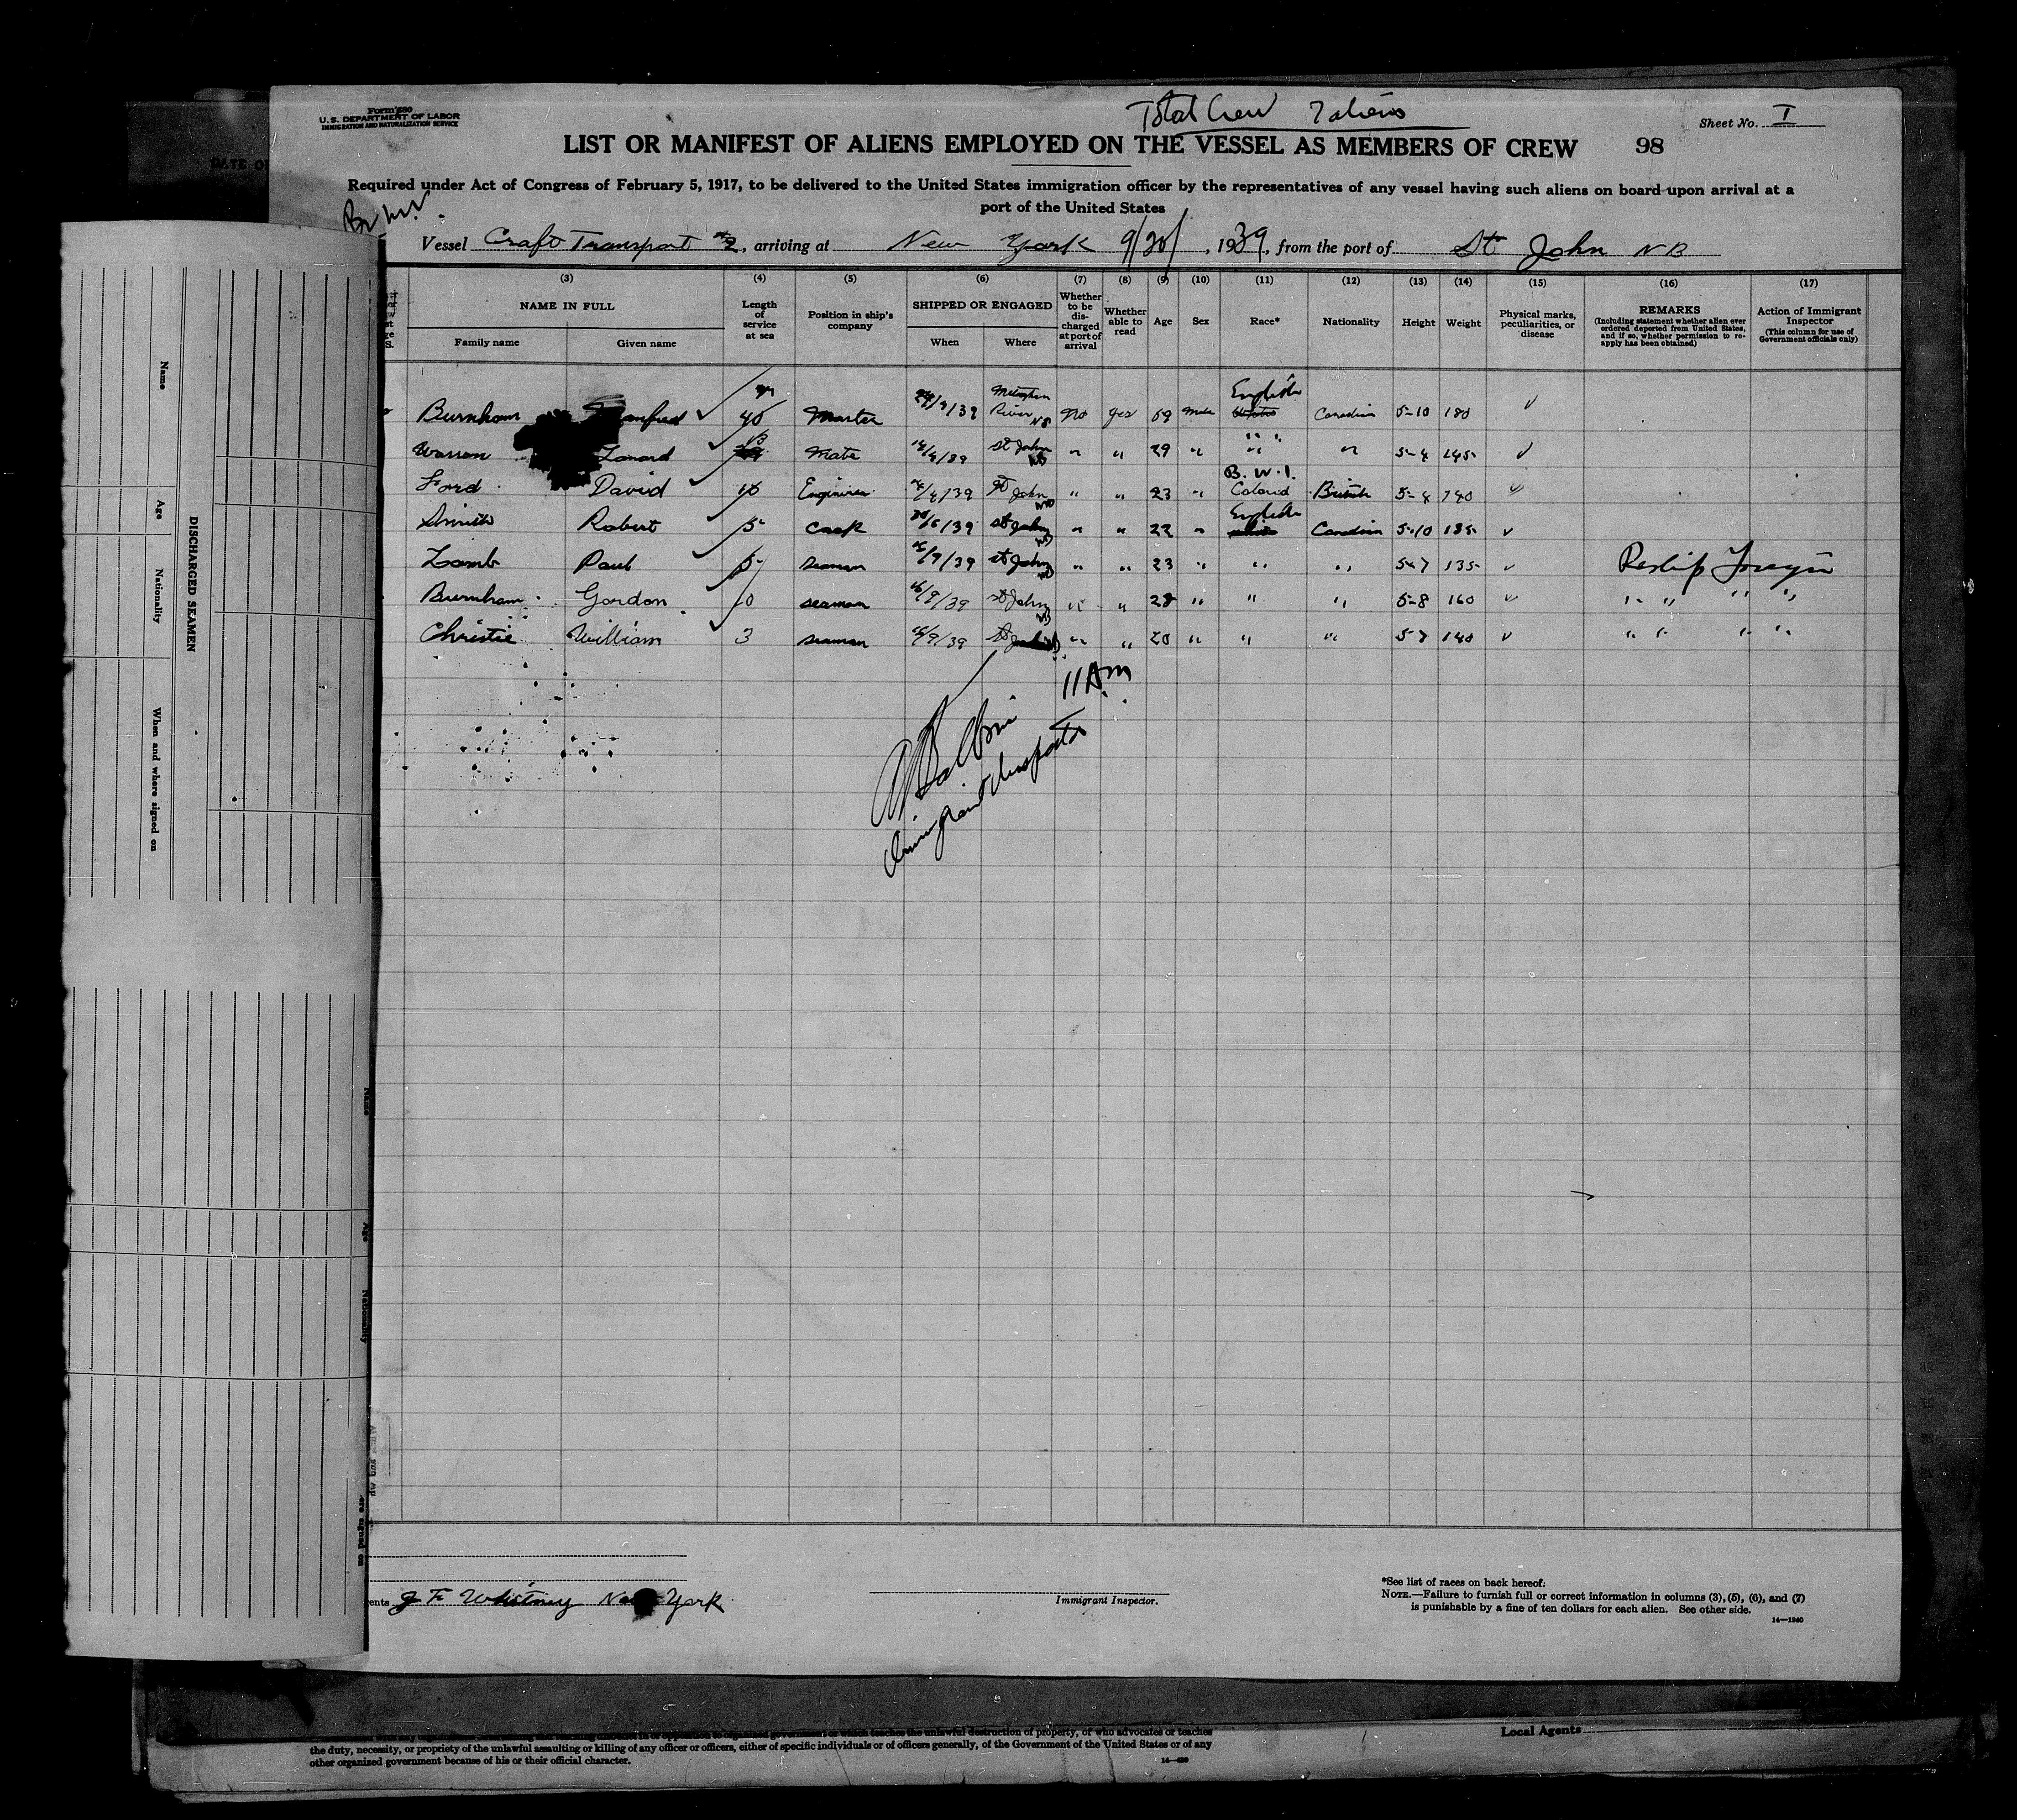 Form 680
U.S. DEPARTMENT OF LABOR
IMMIGRATION AND NATURALIZATION SERVICE
Total Crew 7 aliens
Sheet No. I
LIST OR MANIFEST OF ALIENS EMPLOYED ON THE VESSEL AS MEMBERS OF CREW 98
Required under Act of Congress of February 5, 1917, to be delivered to the United States immigration officer by the representatives of any vessel having such aliens on board upon arrival at a
port of the United States
Vessel Craft Transport #2, arriving at New York 9/20/, 1939, from the port of St John NB
(3) (4) (5) (6) (7) (8) (9) (10) (11) (12) (13) (14) (15) (16) (17)
NAME IN FULL
Family name
Given name
Length of service at sea
Position in ship's company
SHIPPED OR ENGAGED
When
Where
Whether to be discharged at port of arrival
Whether able to read
Age
Sex
Race*
Nationality
Height
Weight
Physical marks, peculiarities, or disease
REMARKS
(Including statement whether alien ever ordered deported from United States, and if so, whether permission to reapply has been obtained)
Action of Immigrant Inspector
(This column for use of Government officials only)
Burnham 40 Master /39 River NS No Yes 59 Male English Canadian 5-10 180
Warren Mate /39 St John NB " " 29 " " " " 5-4 145
Ford David 10 Engineer /39 St John NB " " 23 " B.W.I. Colored British 5-4 140
Smith Robert 5 Cook /39 St John NB " " 22 " English Canadian 5-10 185
Lamb Paul 5 Seaman /9/39 St John NB " " 23 " " " 5-7 135
Burnham Gordon 10 Seaman /9/39 St John NB " " 28 " " " 5-8 160 " " " "
Christie William 3 Seaman /9/39 St John NB " " 20 " " " 5-7 140 " " " "
11 AM
Immigrant Inspector
J F Whitney New York
Immigrant Inspector.
*See list of races on back hereof.
NOTE.—Failure to furnish full or correct information in columns (3), (5), (6), and (7)
is punishable by a fine of ten dollars for each alien. See other side.
14—1240
DISCHARGED SEAMEN
Name
Age
Nationality
When and where signed on
Local Agents
the duty, necessity, or propriety of the unlawful assaulting or killing of any officer or officers, either of specific individuals or of officers generally, of the Government of the United States or of any
other organized government because of his or their official character.